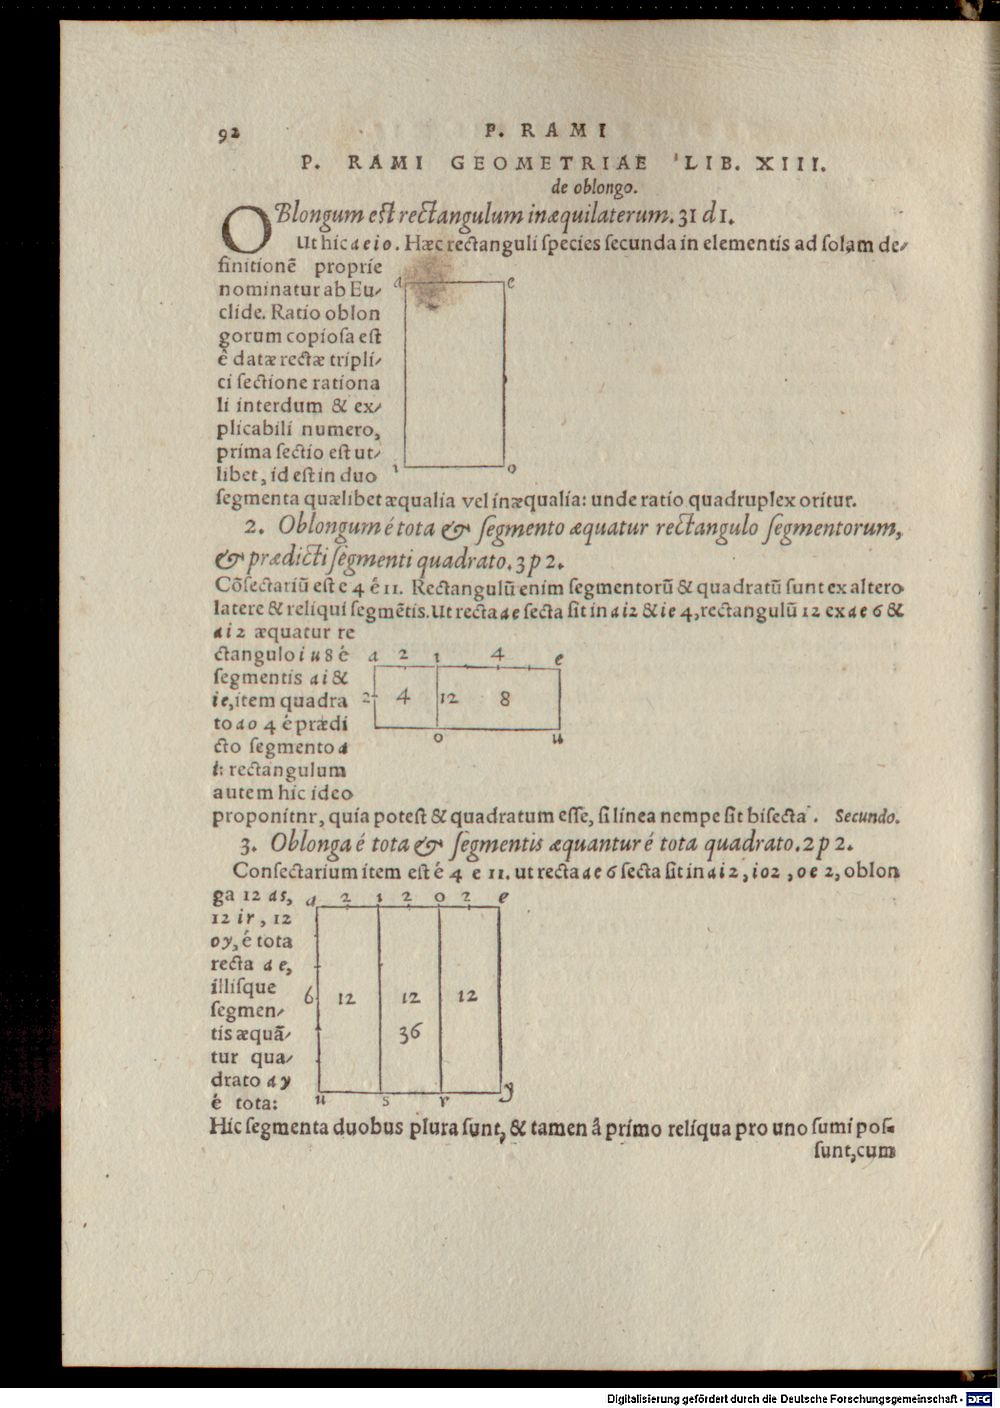 92 P. RAMI
P. RAMI GEOMETRIAE LIB. XIII.
de oblongo.
OBlongum est rectangulum inæquilaterum. 31 d 1.
Ut hic a e i o. Hæc rectanguli species secunda in elementis ad solam de⸗
finitionẽ proprie
nominatur ab Eu⸗
clide. Ratio oblon
gorum copiosa est
é datæ rectæ tripli⸗
ci sectione rationa
li interdum & ex⸗
plicabili numero,
prima sectio est ut⸗
libet, id est in duo
a e
i o
segmenta quælibet æqualia vel inæqualia: unde ratio quadruplex oritur.
2. Oblongum é tota & segmento æquatur rectangulo segmentorum,
& prædicti segmenti quadrato. 3 p 2.
Cõsectariũ est e 4 é 11. Rectangulũ enim segmentorũ & quadratũ sunt ex altero
latere & reliqui segmẽtis. Ut recta a e secta sit in a i 2 & i e 4, rectangulũ 12 ex a e 6 &
a i 2 æquatur re
ctangulo i u 8 é
segmentis a i &
i e, item quadra
to a o 4 é prædi
cto segmento a
i: rectangulum
autem hic ideo
a 2 i 4 e
2 4 12 8
o u
proponitnr, quia potest & quadratum esse, si linea nempe sit bisecta. Secundo.
3. Oblonga é tota & segmentis æquantur é tota quadrato. 2 p 2.
Consectarium item est é 4 e 11. ut recta a e 6 secta sit in a i 2, i o 2, o e 2, oblon
ga 12 a s,
12 i r, 12
o y, é tota
recta a e,
illisque
segmen⸗
tis æquã⸗
tur qua⸗
drato a y
é tota:
a 2 i 2 o 2 e
6 12 12 12
36
u s r y
Hic segmenta duobus plura sunt, & tamen â primo reliqua pro uno sumi pos⸗
sunt, cum
Digitalisierung gefördert durch die Deutsche Forschungsgemeinschaft - DFG